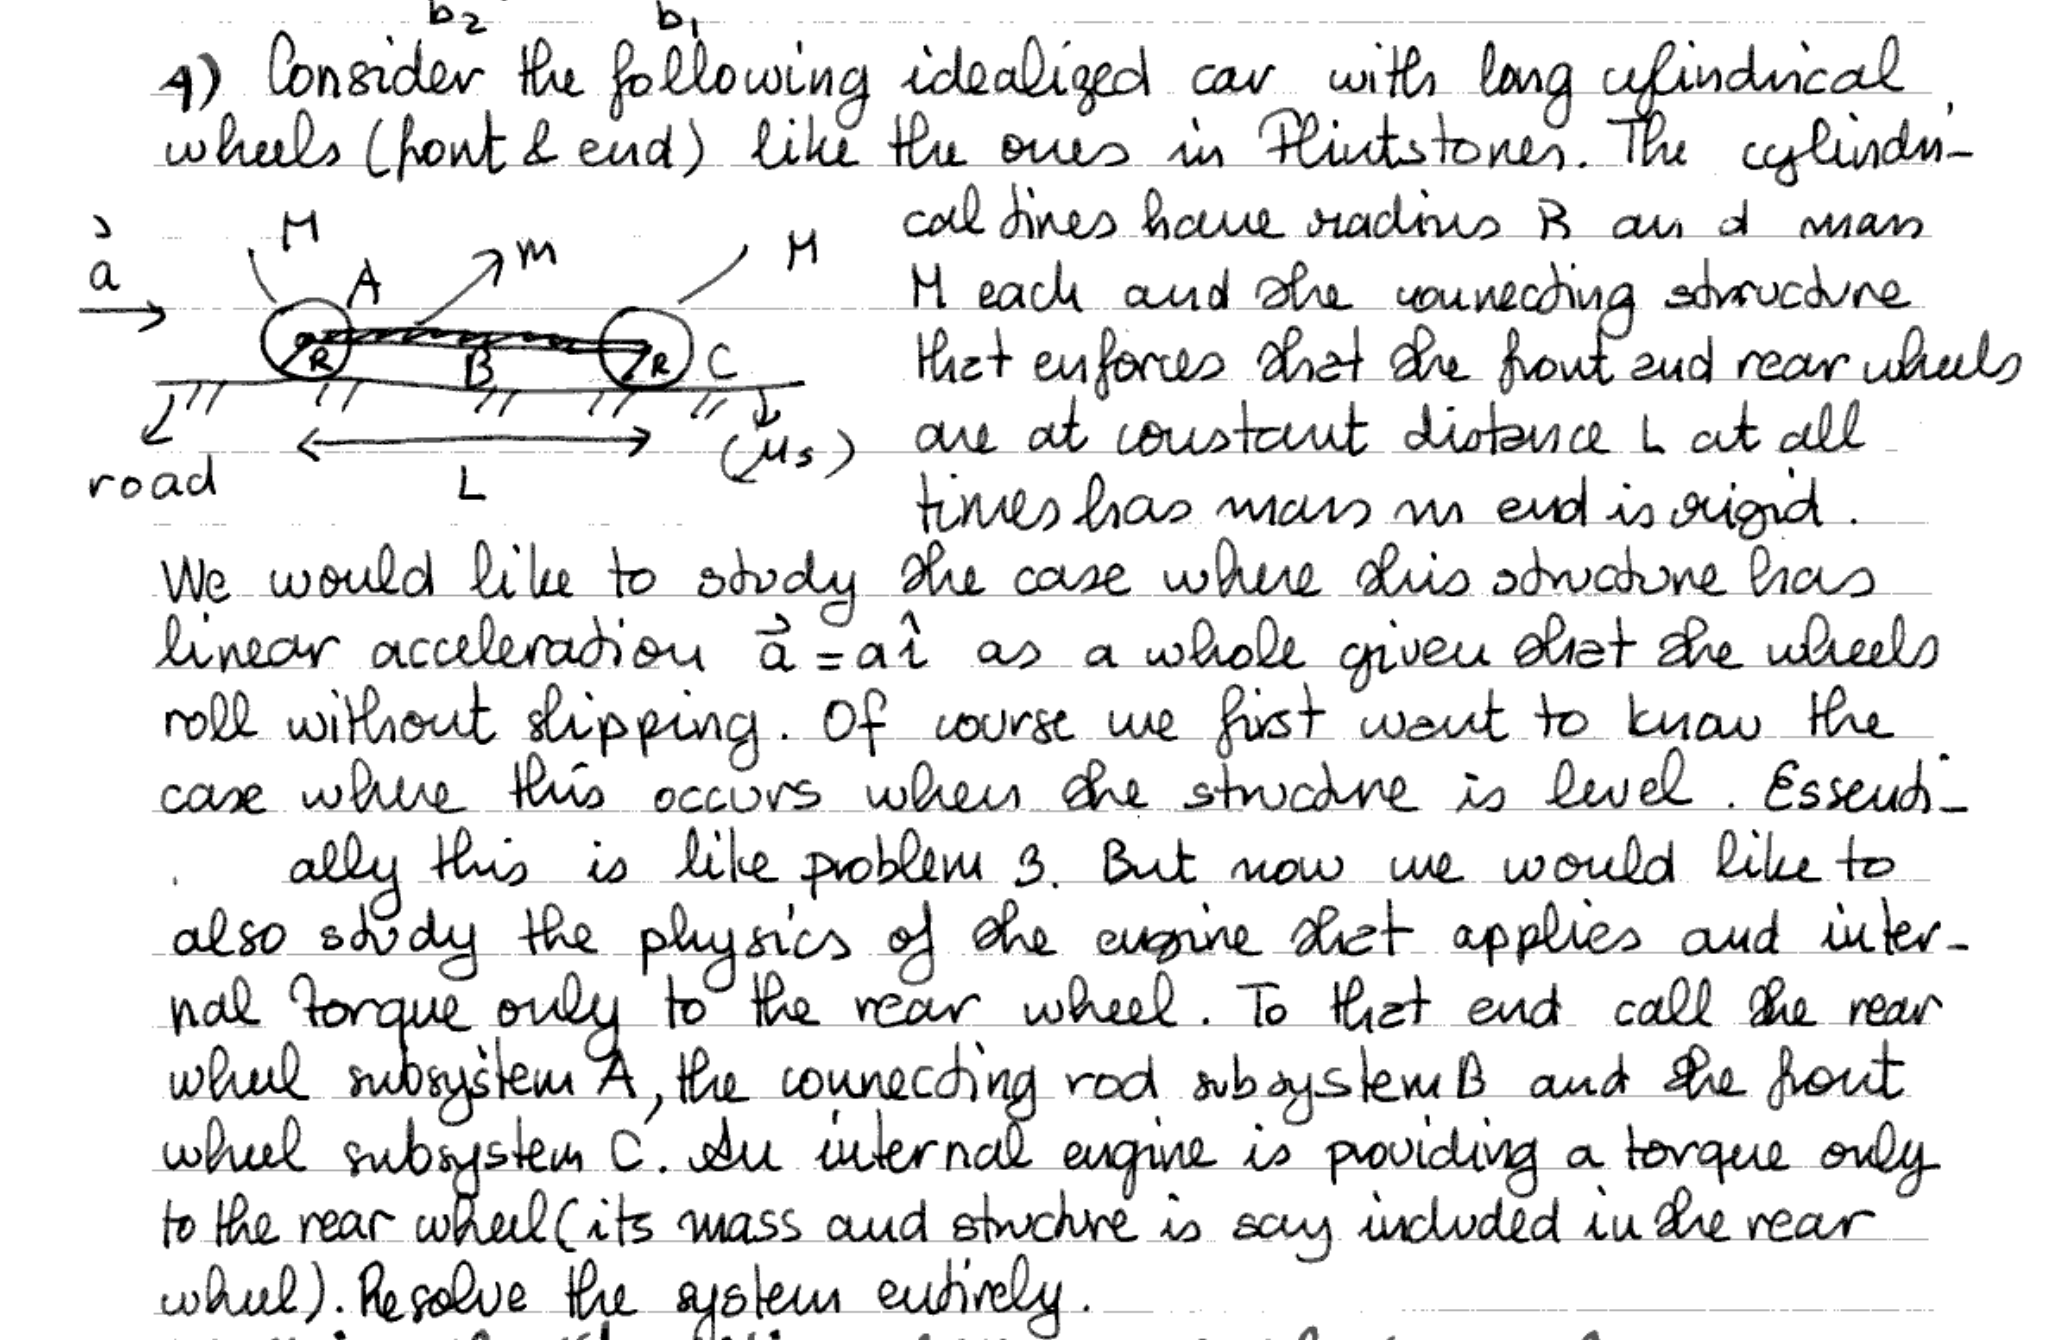 b2 b1
4) Consider the following idealized car with long cylindrical
wheels (front & end) like the ones in Flintstones. The cylindri-
cal tires have radius R and mass
M each and the connecting structure
that enforces that the front and rear wheels
are at constant distance L at all
times has mass m and is rigid.
a M A m M
R B R C
(μs)
road L
We would like to study the case where this structure has
linear acceleration a⃗ = aî as a whole given that the wheels
roll without slipping. Of course we first want to know the
case where this occurs when the structure is level. Essenti-
ally this is like problem 3. But now we would like to
also study the physics of the engine that applies and inter-
nal torque only to the rear wheel. To that end call the rear
wheel subsystem A, the connecting rod subsystem B and the front
wheel subsystem C. An internal engine is providing a torque only
to the rear wheel (its mass and structure is say included in the rear
wheel). Resolve the system entirely.